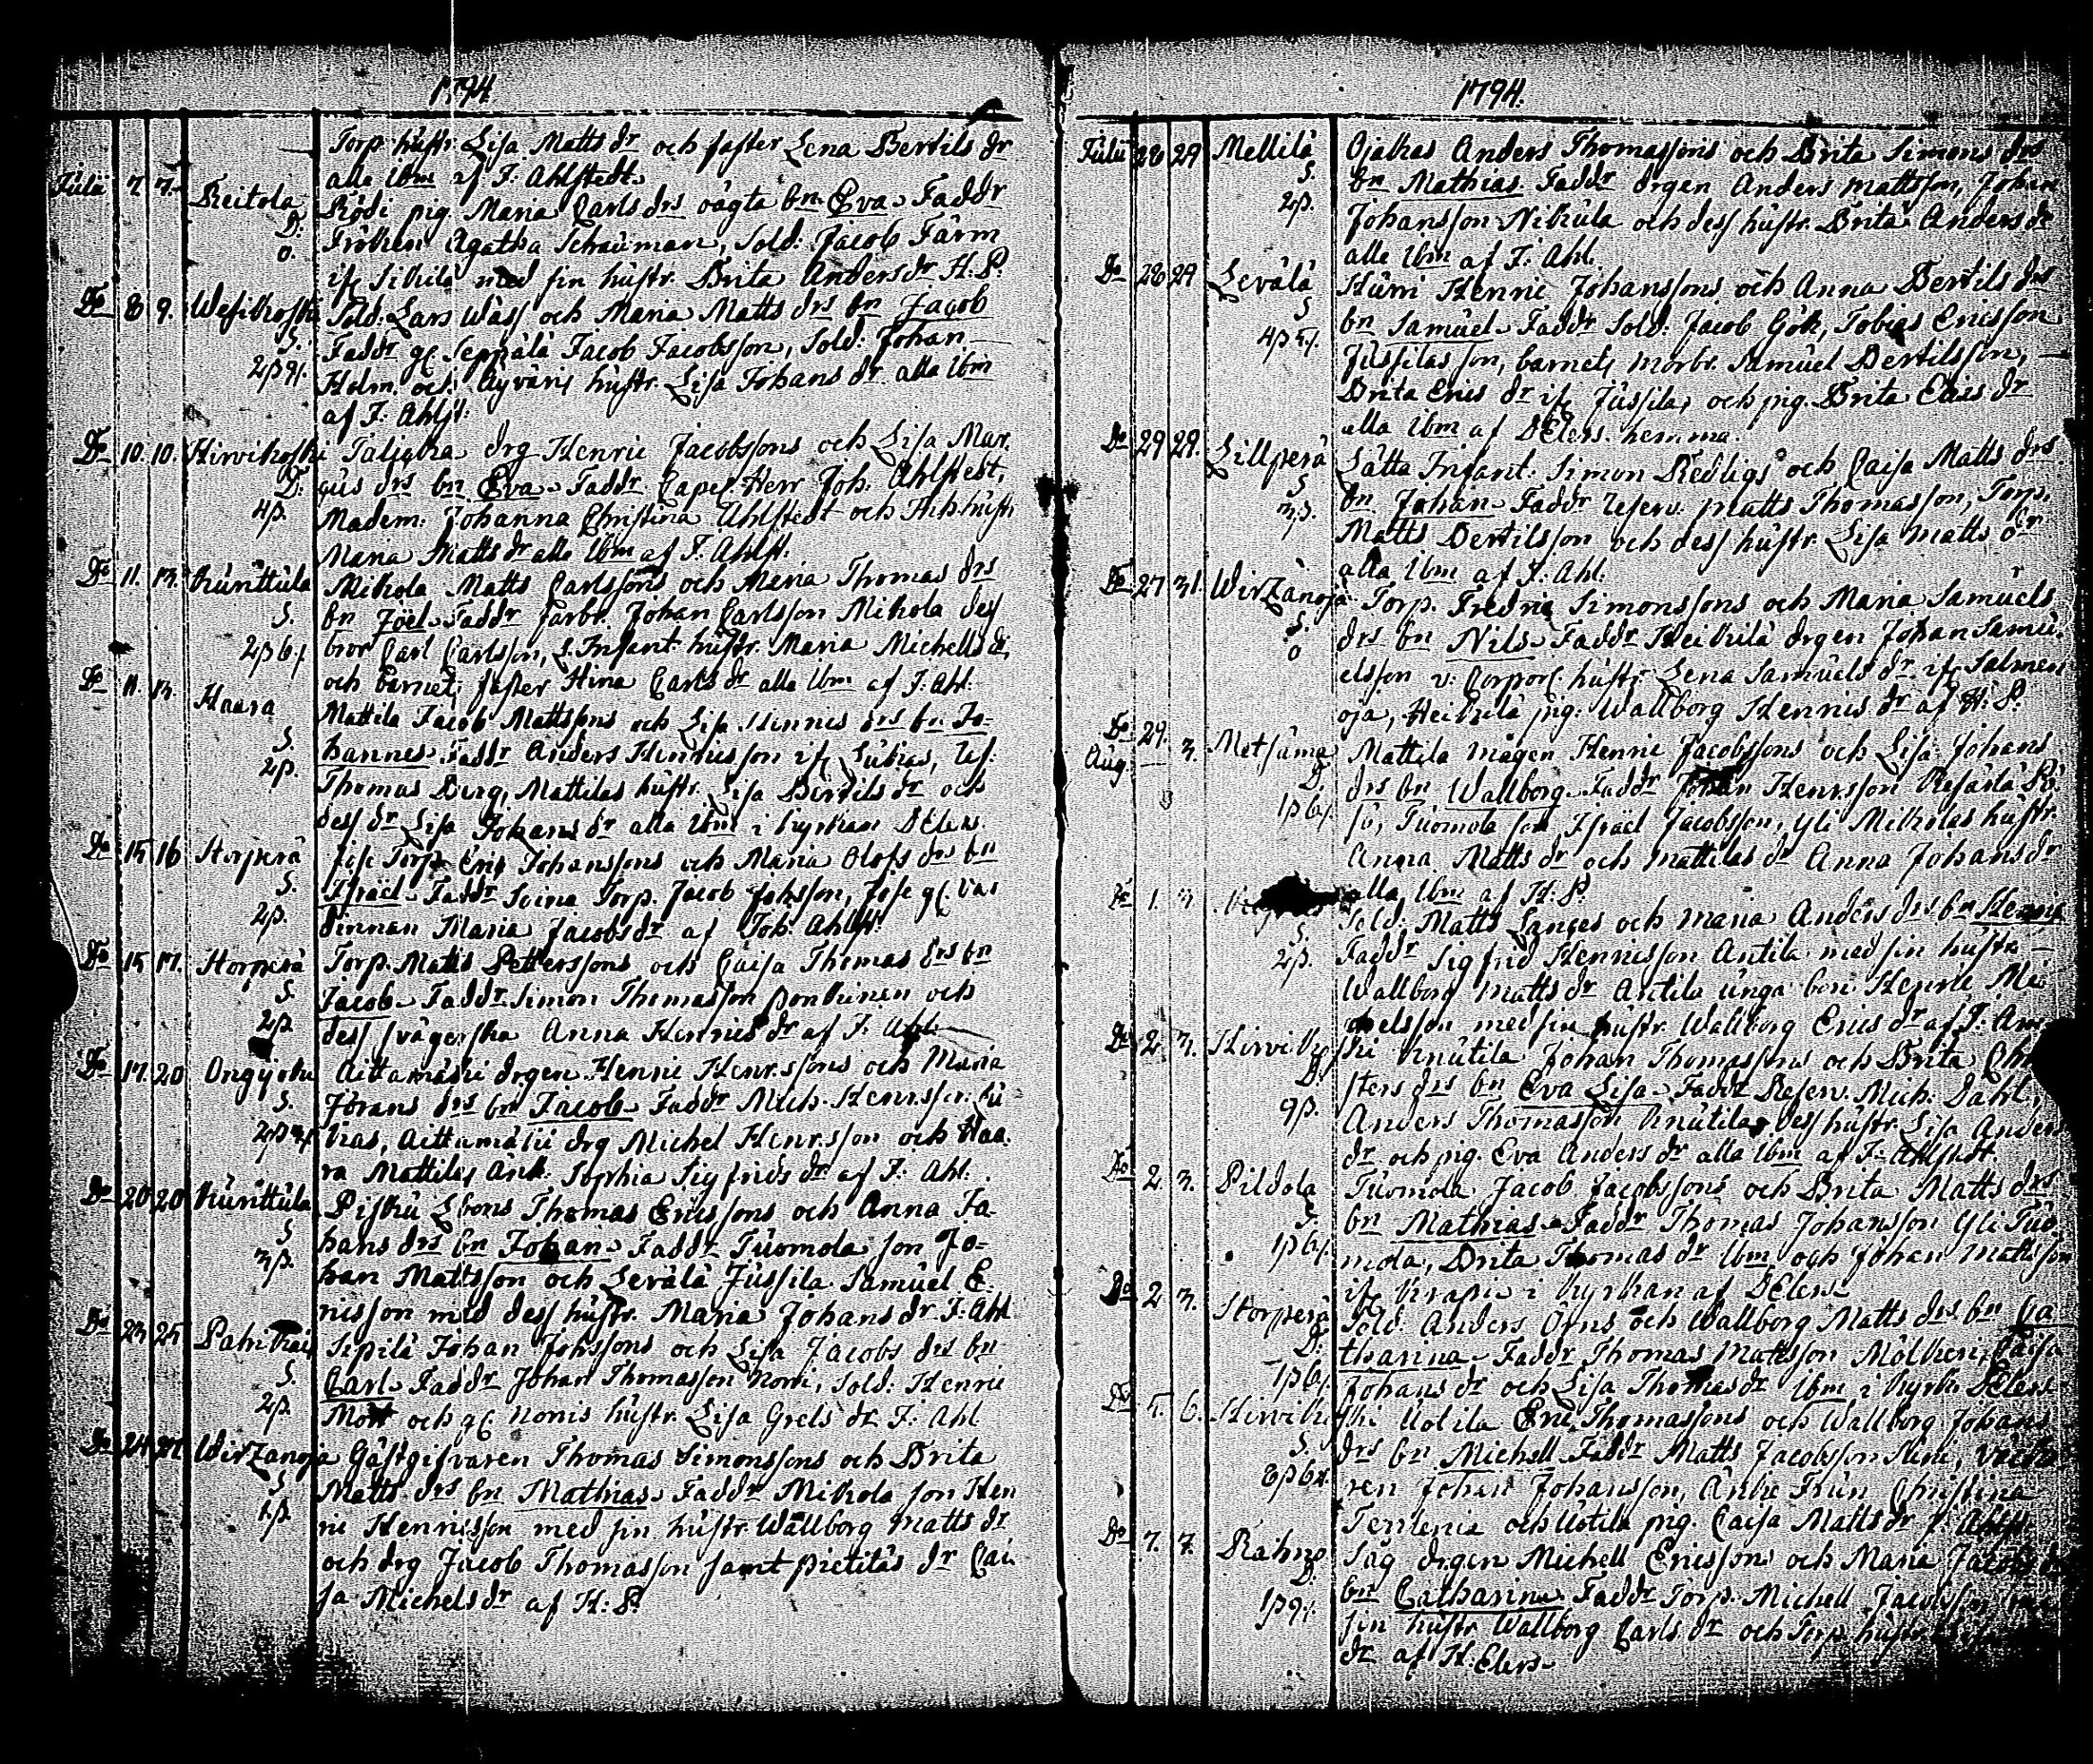 1794.
Torp. hustr. Lisa Matts dr och faster Lena Bertils dr
alla ibm af J. Ahlstedt.
Julii 7. 7. Reitola Rödi pig. Maria Carls drs oägta bn. Eva. Faddr
D: Fröken Agatha Schauman, Sold. Jacob Farm
0. ifr Sikilä med sin hustr. Brita Anders dr. H. P.
Do 8 9. Wesikoski Sold. Lars Wass och Maria Matts drs bn Jacob
S. Faddr gl. Seppälä Jacob Jacobsson, Sold. Johan
2p 9/. Helm. och Äyväris hustr. Lisa Johans dr. alla ibm
af J. Ahlst.
Do 10. 10. Hirvikoski Taljaka drg Henric Jacobssons och Lisa Mar-
D: cus drs bn Eva. Faddr. Capel. Herr Joh. Ahlstedt,
4p. Madem: Johanna Christina Ahlstedt och hustr
Maria Matts dr alla ibm af J. Ahlst.
Do 11. 13. Kurittula Mikola Matts Carlssons och Maria Thomas drs
S. bn Joël. Faddr farbr. Johan Carlsson Mikola dess
2p 6/. bror Carl Carlsson, L. Infant. hustr. Maria Michells dr,
och barnets faster Hina Carls dr alla ibm af J. Ahl.
Do 11. 13. Haara Mattila Jacob Mattssons och Lisa Hinrics drs bn Jo-
S. hannes. Faddr Anders Henricsson ifr Lukas,
2p. Thomas Berg, Mattilas hustr. Lisa Bertils dr och
dess dr Lisa Johans dr alla ibm i kyrkan D Elers.
Do 15 16 Storperä Torp. Eric Johanssons och Maria Olofs drs bn
S. Israël. Faddr Torp. Jacob Johsson, gl. vär
2p. dinnan Maria Jacobs dr af Joh. Ahlst.
Do 15 17. Storperä Torp. Matts Petterssons och Caisa Thomas drs bn
S. Jacob. Faddr. Simon Thomasson Ponkinen och
2p. dess svägerska Anna Henrics dr af J. Ahl.
Do 17. 20 Ongijoki Aittamäki drgen Henric Henr.ssons och Maria
S. Jörans drs bn Jacob. Faddr Mich. Henr.sson Lu
kas, Aittamäki drg Michel Henr.sson och Haa-
ra Mattilas änk. Sophia Sigfrids dr af J. Ahl.
Do 20 20 Kurittula Piskü Lbons Thomas Ericssons och Anna Jo
S hans drs bn Johan. Faddr. Tuomola son Jo-
3p. han Mattsson och Levälä Jussila Samuel E-
ricsson med dess hustr. Maria Johans dr J. Ahl
Do 23 25 Pahikais Sipilä Johan Johssons och Lisa Jacobs drs bn
S. Carl. Faddr Johan Thomasson Nonni, Sold. Henric
2p. och gl. Nonis hustr. Lisa Grels dr. J. Ahl
Do 24 27. Wirzanoja Gästgifvaren Thomas Simonssons och Brita
S Matts drs bn Mathias. Faddr Mikola son Hen
ric Henricsson med sin hustr. Wallborg Matts dr
och drg Jacob Thomasson samt Pietiläs dr Cai
sa Michels dr af H. P.
1794.
Julii 28 29 Mellilä Ojalkas Anders Thomassons och Brita Simons drs
S. bn Mathias. Faddr drgen Anders Mattsson, Johan
2p. Johansson Nikula och dess hustr. Brita Anders dr
alla ibm af J. Ahl.
Do 28 29 Levälä Henric Johanssons och Anna Bertils drs
S bn Samuel. Faddr Sold. Jacob Gök, Tobias Ericsson
Jussilas son, barnets morbr. Samuel Bertilsson,
Brita Erics dr ifr Jussila, och pig. Brita Erics dr
alla ibm af D Elers. hemma.
Do 29 29. Lillperä Lätta Infant. Simon Redligs och Caisa Matts drs
S bn Johan. Faddr Reserv. Matts Thomasson, Torp.
3p. Matts Bertilsson och dess hustr. Lisa Matts dr
alla ibm af J. Ahl.
Do 27 31. Wirzanoja Torp. Fredric Simonssons och Maria Samuels
S. drs bn Nils. Faddr Heikilä drgen Johan Samu-
0 elsson v: Corporl. hustr. Lena Samuels dr. ifr Salmen
oja, Heikilä pig. Wallborg Henrics dr af H. P.
Do 29. Aug. 3. Metsämaa Mattila mågen Henric Jacobssons och Lisa Johans
D. drs bn Wallborg. Faddr Johan Henr.sson
1p 6/. Tuomola son Israël Jacobsson, Yli Mikolas hustr.
Anna Matts dr och Mattilas dr Anna Johans dr
alla ibm af H. P.
Do 1. 3. Sold. Matts Langes och Maria Anders drs bn Henric
S. Faddr Sigfrid Henricsson Antila med sin hustru
2p. Wallborg Matts dr Antila unga bon Henric Mi
chelsson med sin hustr. Wallborg Erics dr af J.
Do 2 3. Hirvikoski Knutila Johan Thomassons och Brita Chri
D. sters drs bn Eva Lisa. Faddr Reserv. Mich. Dahl,
9p. Anders Thomasson Knutila, dess hustr. Lisa Anders
dr. och pig. Eva Anders dr alla ibm af J. Ahlstedt.
Do 2 3. Pildola Tuomola Jacob Jacobssons och Brita Matts drs
S. bn Mathias. Faddr Thomas Johansson Yli Tuo
1p 6/. mola, Brita Thomas dr ibm och Johan Mattsson
ifr Krapu i kyrkan af D Elers
Do 2 3. Storperä Sold. Anders Örns och Wallborg Matts drs bn Ca
D: tharina. Faddr Thomas Mattsson Caisa
1p 6/. Johans dr och Lisa Thomas dr ibm i kyrk. D Elers
Do 5. 6. Hirvikoski Uotila Eric Thomassons och Wallborg Johans
S. drs bn Michell. Faddr Matts Jacobsson
Johan Johansson, Christina
och Uotila pig. Caisa Matts dr J. Ahlst
Do 7. 7. Rahno Säg drgen Michell Ericssons och Maria
D. bn Catharina. Faddr Torp. Michell Jacobsson
1p 9/. sin hustr Wallborg Carls dr och Torp. hustr
dr af H. Elers